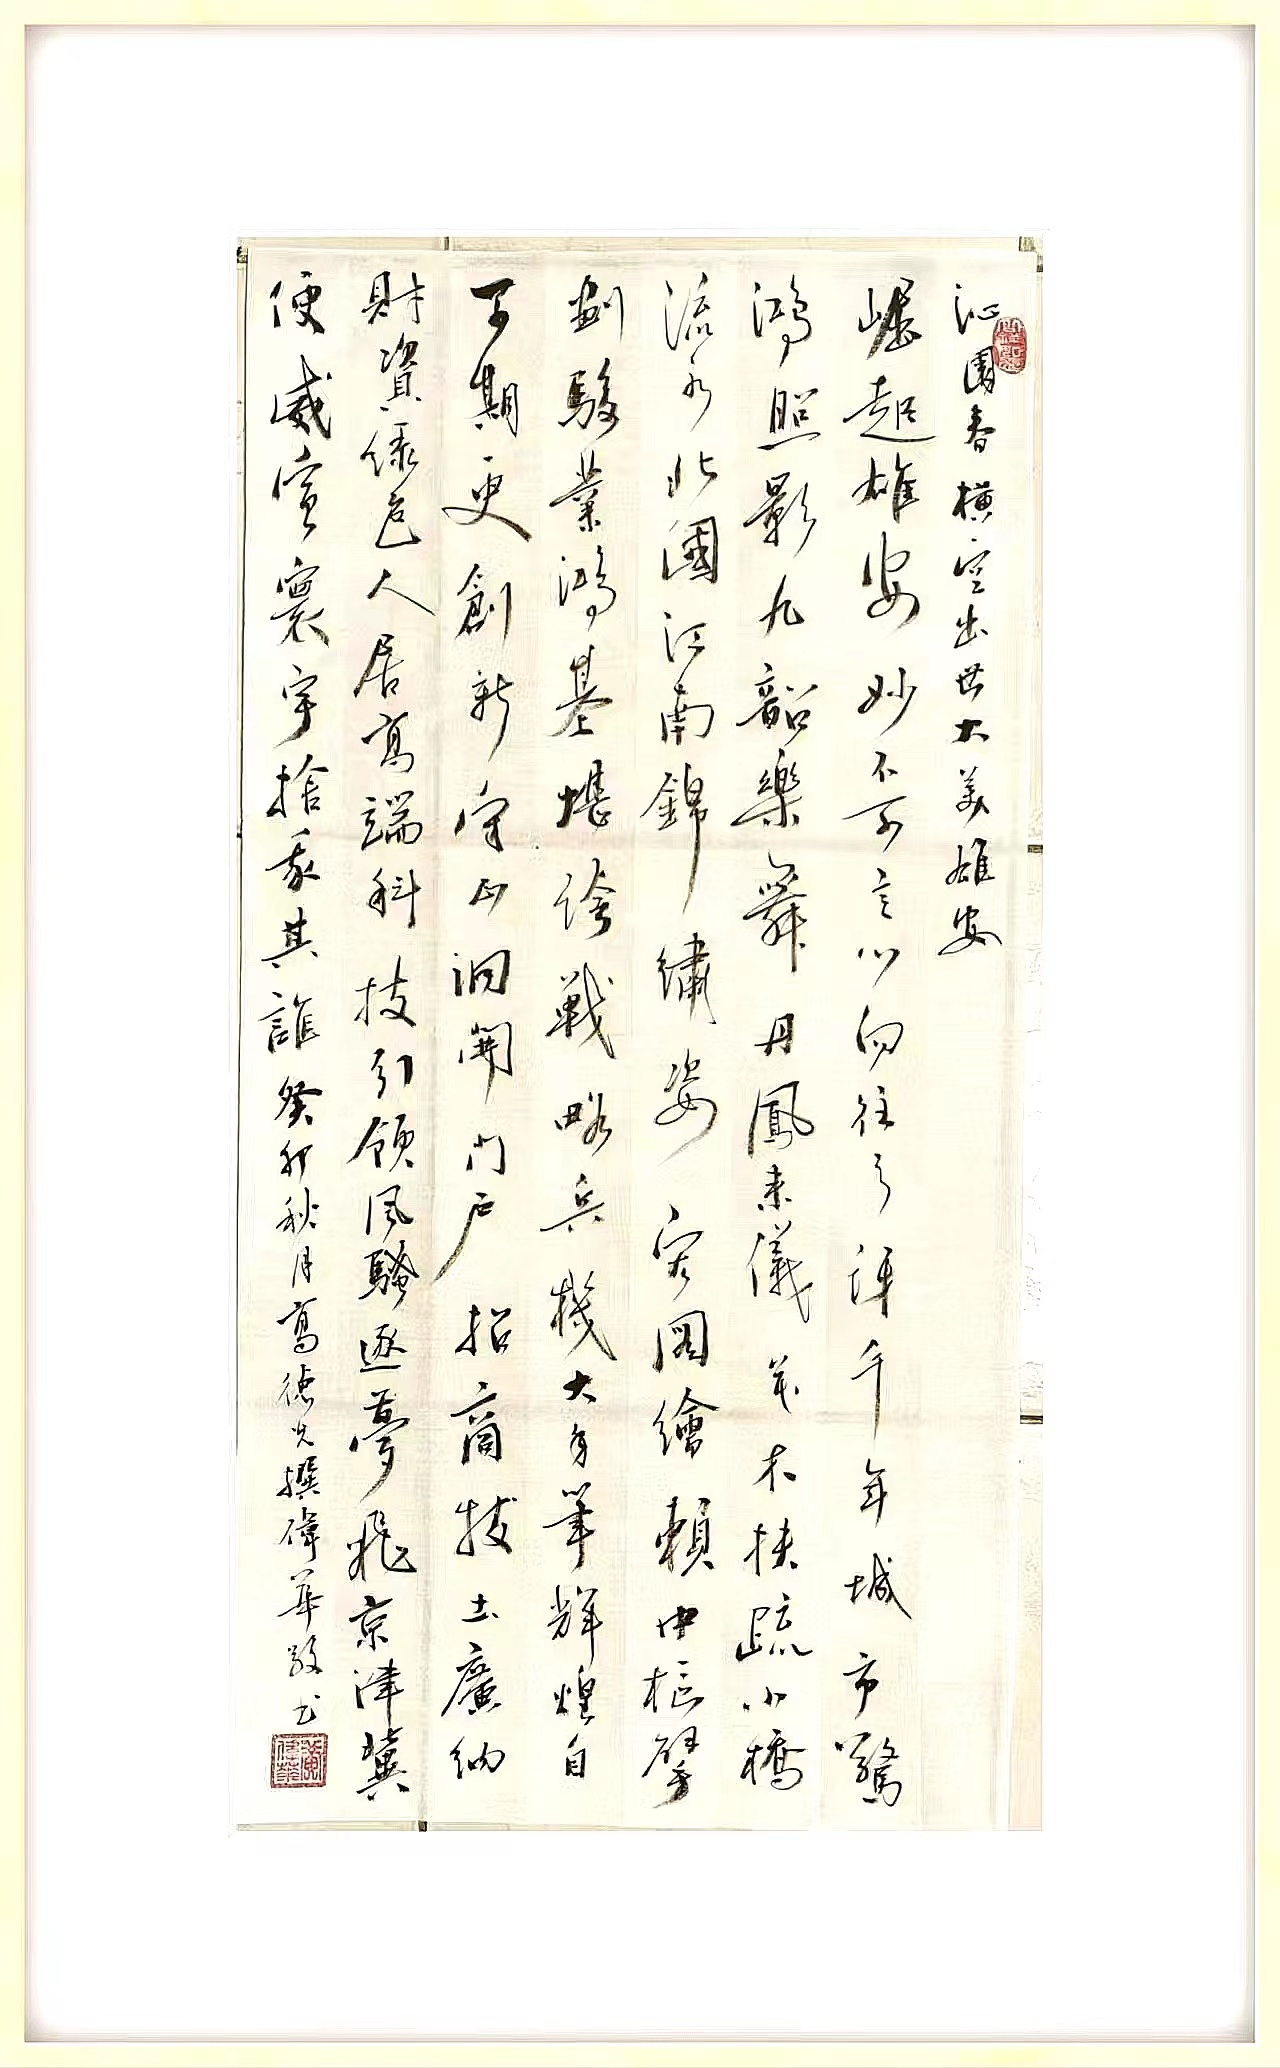 沁園春 橫空出世大美雄安
崛起雄安妙不可言心向往之評千年城市驚
鴻照影九韶樂舞丹鳳來儀花木扶疏小橋
流水北國江南錦繡姿宏圖繪賴中樞擘
劃駿業鴻基堪誇戰略兵機大手筆輝煌自
可期更創新守正洞開門戶招商拔士廣納
財資綠色人居高端科技引領風騷逐夢飛京津冀
便威震寰宇捨我其誰癸卯秋月高德光撰偉華敬书